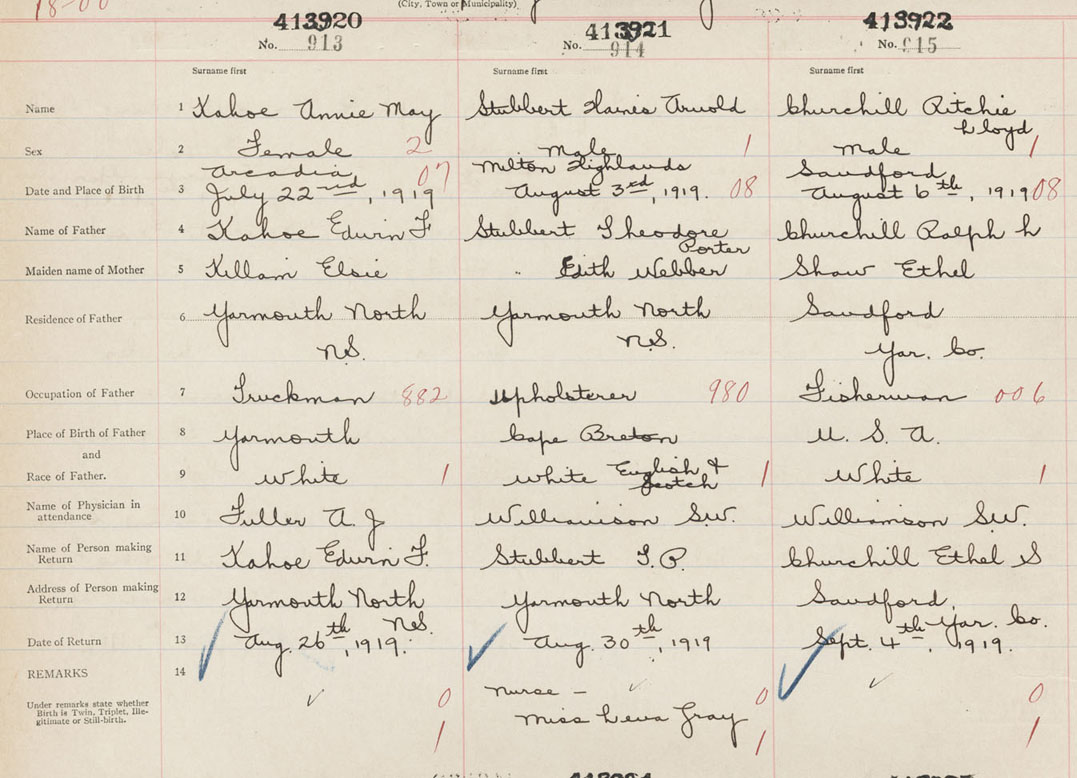 18-00
(City, Town or Municipality)
413920 413921 413922
No. 913 No. 914 No. 915
Surname first Surname first Surname first
Name 1 Kahoe Annie May Stubbert Hains Arnold Churchill Ritchie
Lloyd
Sex 2 Female 2 Male 1 Male 1
Arcadia Milton Highlands Sandford
Date and Place of Birth 3 July 22nd, 1919 07 August 3rd, 1919. 08 August 6th, 1919 08
Name of Father 4 Kahoe Edwin F Stubbert Theodore Churchill Ralph L
Porter
Maiden name of Mother 5 Killam Elsie " Edith Webber Shaw Ethel
Residence of Father 6 Yarmouth North Yarmouth North Sandford
N.S. N.S. Yar. Co.
Occupation of Father 7 Truckman 882 Upholsterer 980 Fisherman 006
Place of Birth of Father 8 Yarmouth Cape Breton U. S. A.
and
Race of Father. 9 White 1 White English & Scotch 1 White 1
Name of Physician in attendance 10 Fuller A. J Williamson S.W. Williamson S.W.
Name of Person making Return 11 Kahoe Edwin F. Stubbert T. P. Churchill Ethel S
Address of Person making Return 12 Yarmouth North Yarmouth North Sandford,
N.S. Yar. Co.
Date of Return 13 Aug. 26th, 1919. Aug. 30th, 1919 Sept. 4th, 1919.
REMARKS 14
Under remarks state whether Birth is Twin, Triplet, Ille-
gitimate or Still-birth.
Nurse -
Miss Lena Gray
0 0 0
1 1 1